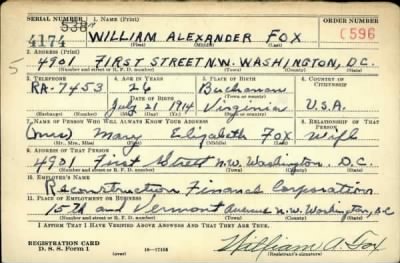 SERIAL NUMBER 1. NAME (Print) ORDER NUMBER
538
4174 WILLIAM ALEXANDER FOX C596
(First) (Middle) (Last)
2. ADDRESS (Print)
5 4901 FIRST STREET N.W. WASHINGTON, D.C.
(Number and street or R. F. D. number) (Town) (County) (State)
3. TELEPHONE 4. AGE IN YEARS 5. PLACE OF BIRTH 6. COUNTRY OF CITIZENSHIP
RA-7453 26 Buchanan
DATE OF BIRTH
July 21 1914 Virginia U.S.A.
(Exchange) (Number) (Mo.) (Day) (Yr.) (State or country)
7. NAME OF PERSON WHO WILL ALWAYS KNOW YOUR ADDRESS 8. RELATIONSHIP OF THAT PERSON
(Mrs) Mary Elizabeth Fox Wife
(Mr., Mrs., Miss) (First) (Middle) (Last)
9. ADDRESS OF THAT PERSON
4901 First Street N.W. Washington, D.C.
(Number and street or R. F. D. number) (Town) (County) (State)
10. EMPLOYER'S NAME
Reconstruction Finance Corporation
11. PLACE OF EMPLOYMENT OR BUSINESS
15th and Vermont Avenue N.W. Washington, D.C
(Number and street or R. F. D. number) (Town) (County) (State)
I AFFIRM THAT I HAVE VERIFIED ABOVE ANSWERS AND THAT THEY ARE TRUE.
REGISTRATION CARD
D. S. S. Form 1 (over) 16—17105 William A. Fox